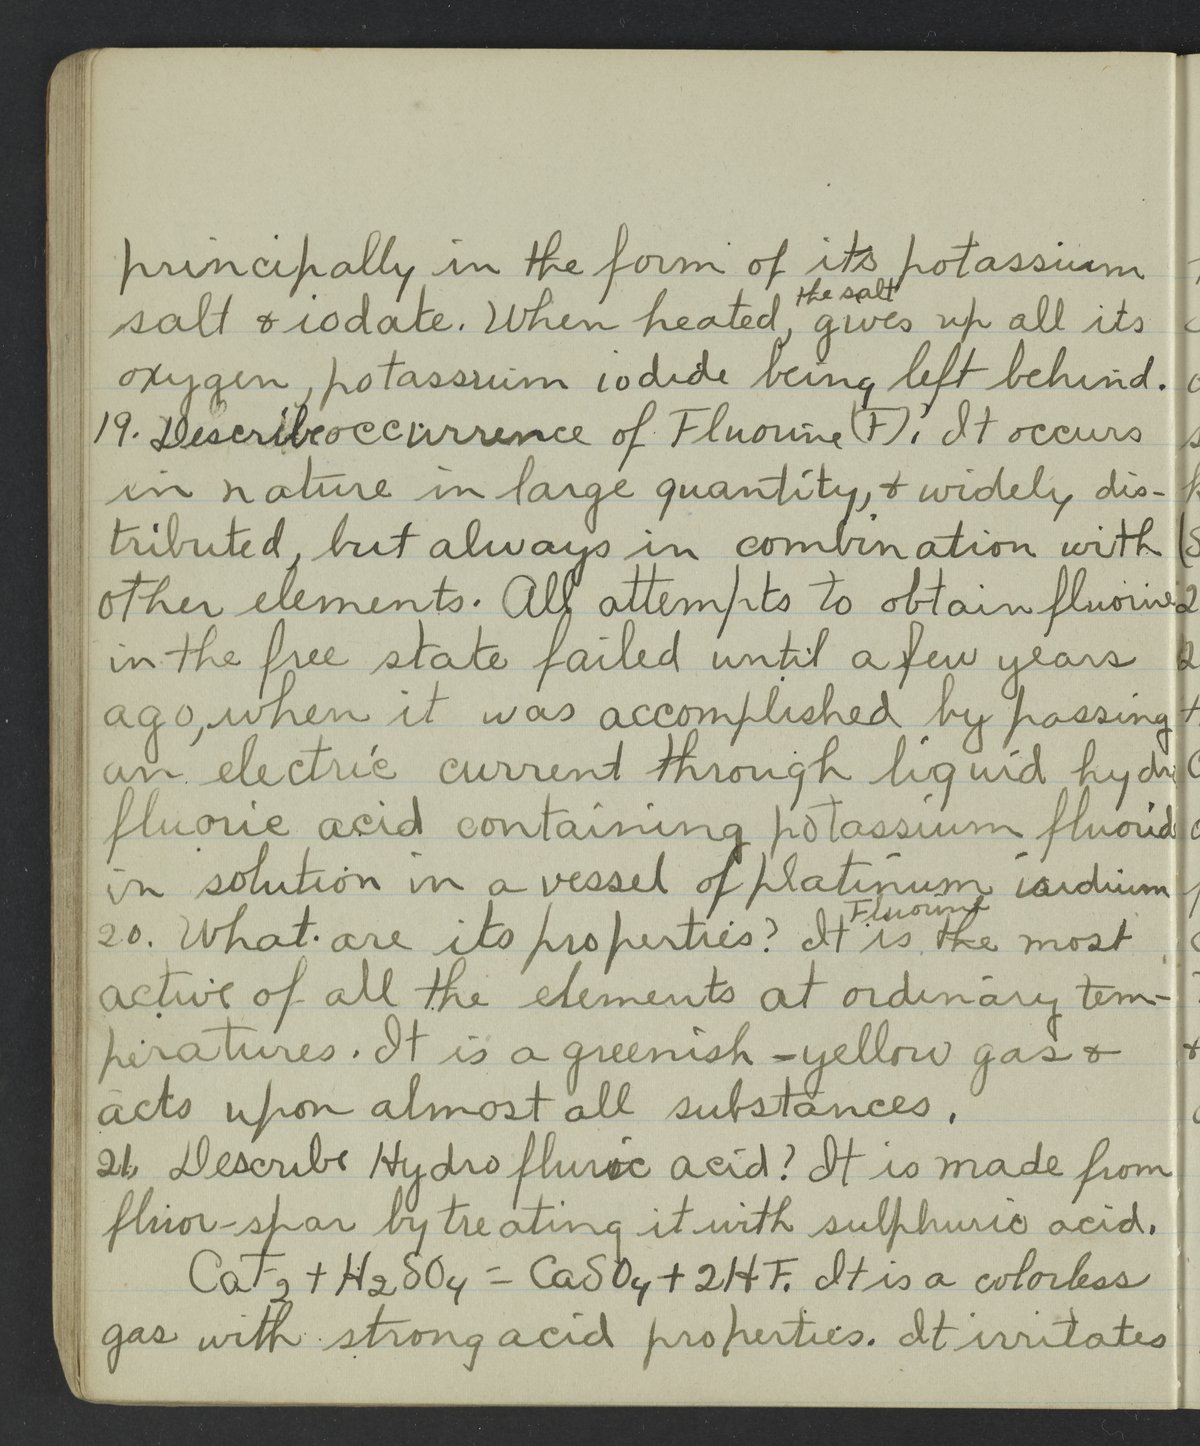 principally in the form of its potassium
salt & iodate. When heated, the salt gives up all its
oxygen, potassium iodide being left behind.
19. Describe occurrence of Fluorine (F)? It occurs
in nature in large quantity, & widely dis-
tributed, but always in combination with
other elements. All attempts to obtain fluorine
in the free state failed until a few years
ago, when it was accomplished by passing
an electric current through liquid hydro
fluoric acid containing potassium fluorid
in solution in a vessel of platinum
20. What are its properties? It Fluorine is the most
active of all the elements at ordinary tem-
peratures. It is a greenish-yellow gas &
acts upon almost all substances.
21. Describe Hydrofluric acid? It is made from
fluor-spar by treating it with sulphuric acid.
CaF2 + H2SO4 = CaSO4 + 2HF. It is a colorless
gas with strong acid properties. It irritates